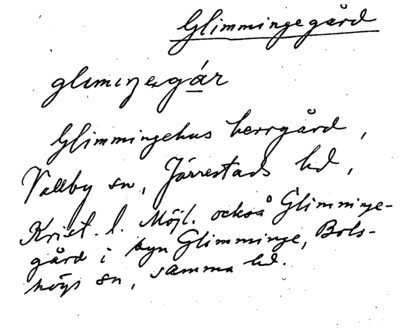 Glimmingegård
glimiŋəgår
Glimmingehus herrgård,
Vallby sn, Järrestads hd,
Krist. l. Möjl. också Glimminge-
gård i byn Glimminge, Bols-
högs sn, samma hd.